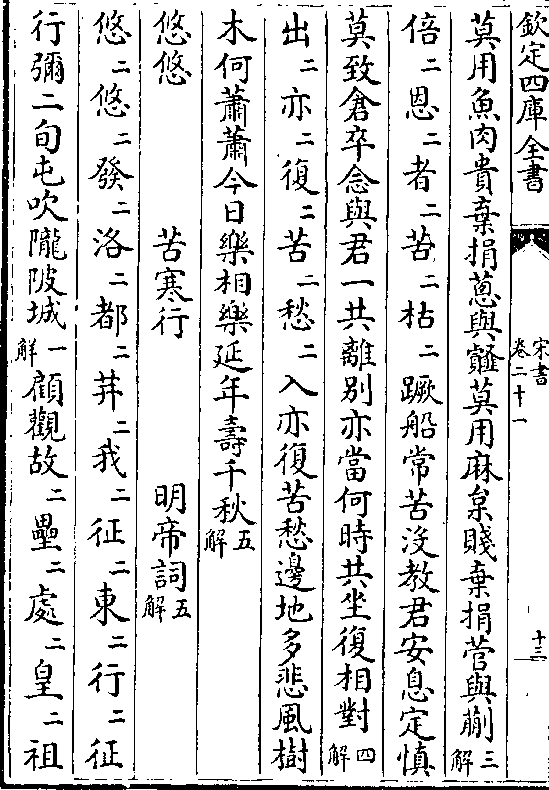 欽定四庫全書
宋書
卷二十一
十三
莫用魚肉貴棄捐蔥與薤莫用麻枲賤棄捐菅與蒯三解
倍二恩二者二苦二枯二蹶船常苦沒教君安息定慎
莫致倉卒念與君一共離別亦當何時共坐復相對四解
出二亦二復二苦二愁二入亦復苦愁邊地多悲風樹
木何蕭蕭今日樂相樂延年壽千秋五解
悠悠 苦寒行 明帝詞五解
悠二悠二發二洛二都二荓二我二征二東二行二征
行彌二旬屯吹隴陂城一解顧觀故二壘二處二皇二祖